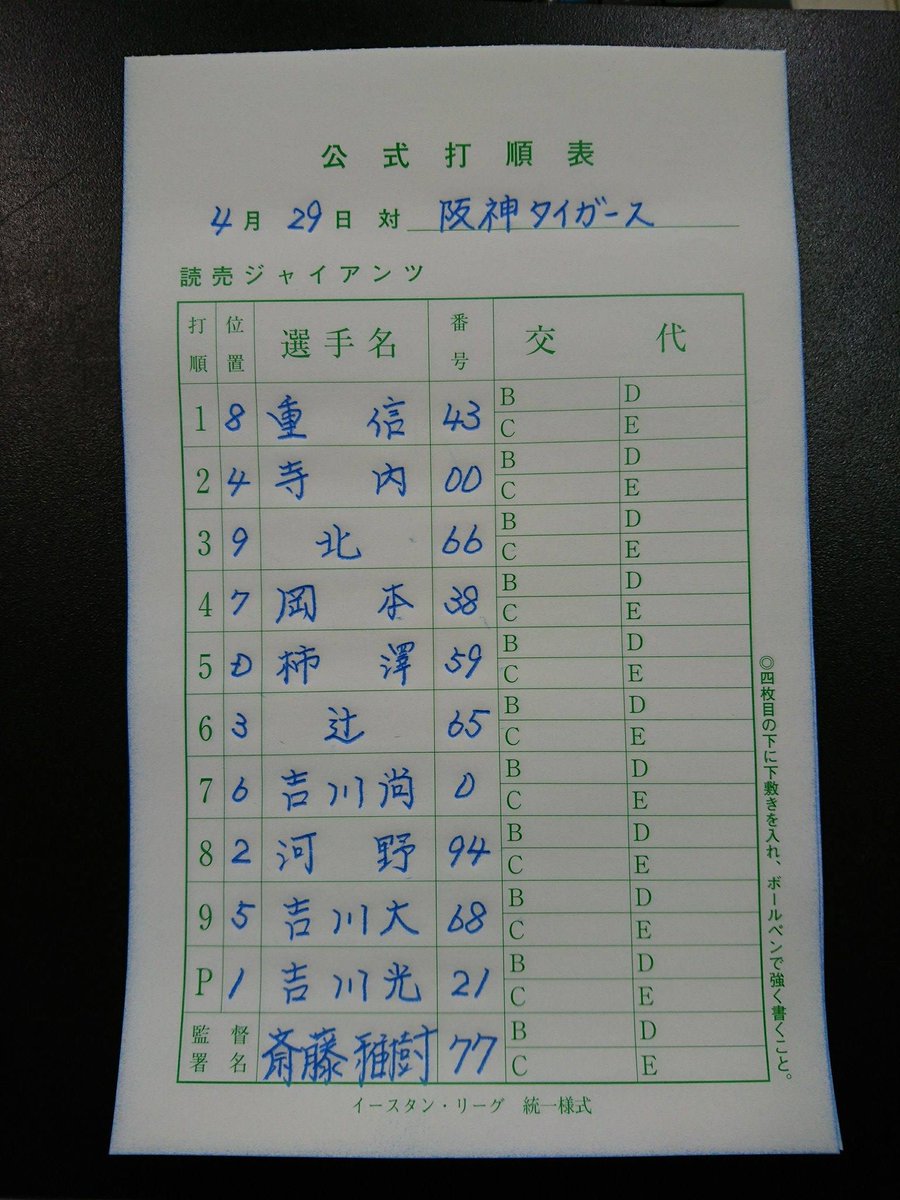 公式打順表
4月29日 対 阪神タイガース
読売ジャイアンツ
打順 位置 選手名 番号 交代
1 8 重信 43 B D C E
2 4 寺内 00 B D C E
3 9 北 66 B D C E
4 7 岡本 38 B D C E
5 D 柿澤 59 B D C E
6 3 辻 65 B D C E
7 6 吉川尚 0 B D C E
8 2 河野 94 B D C E
9 5 吉川大 68 B D C E
P 1 吉川光 21 B D C E
監督署名 斎藤雅樹 77 B D C E
イースタン・リーグ 統一様式
◎四枚目の下に下敷きを入れ、ボールペンで強く書くこと。